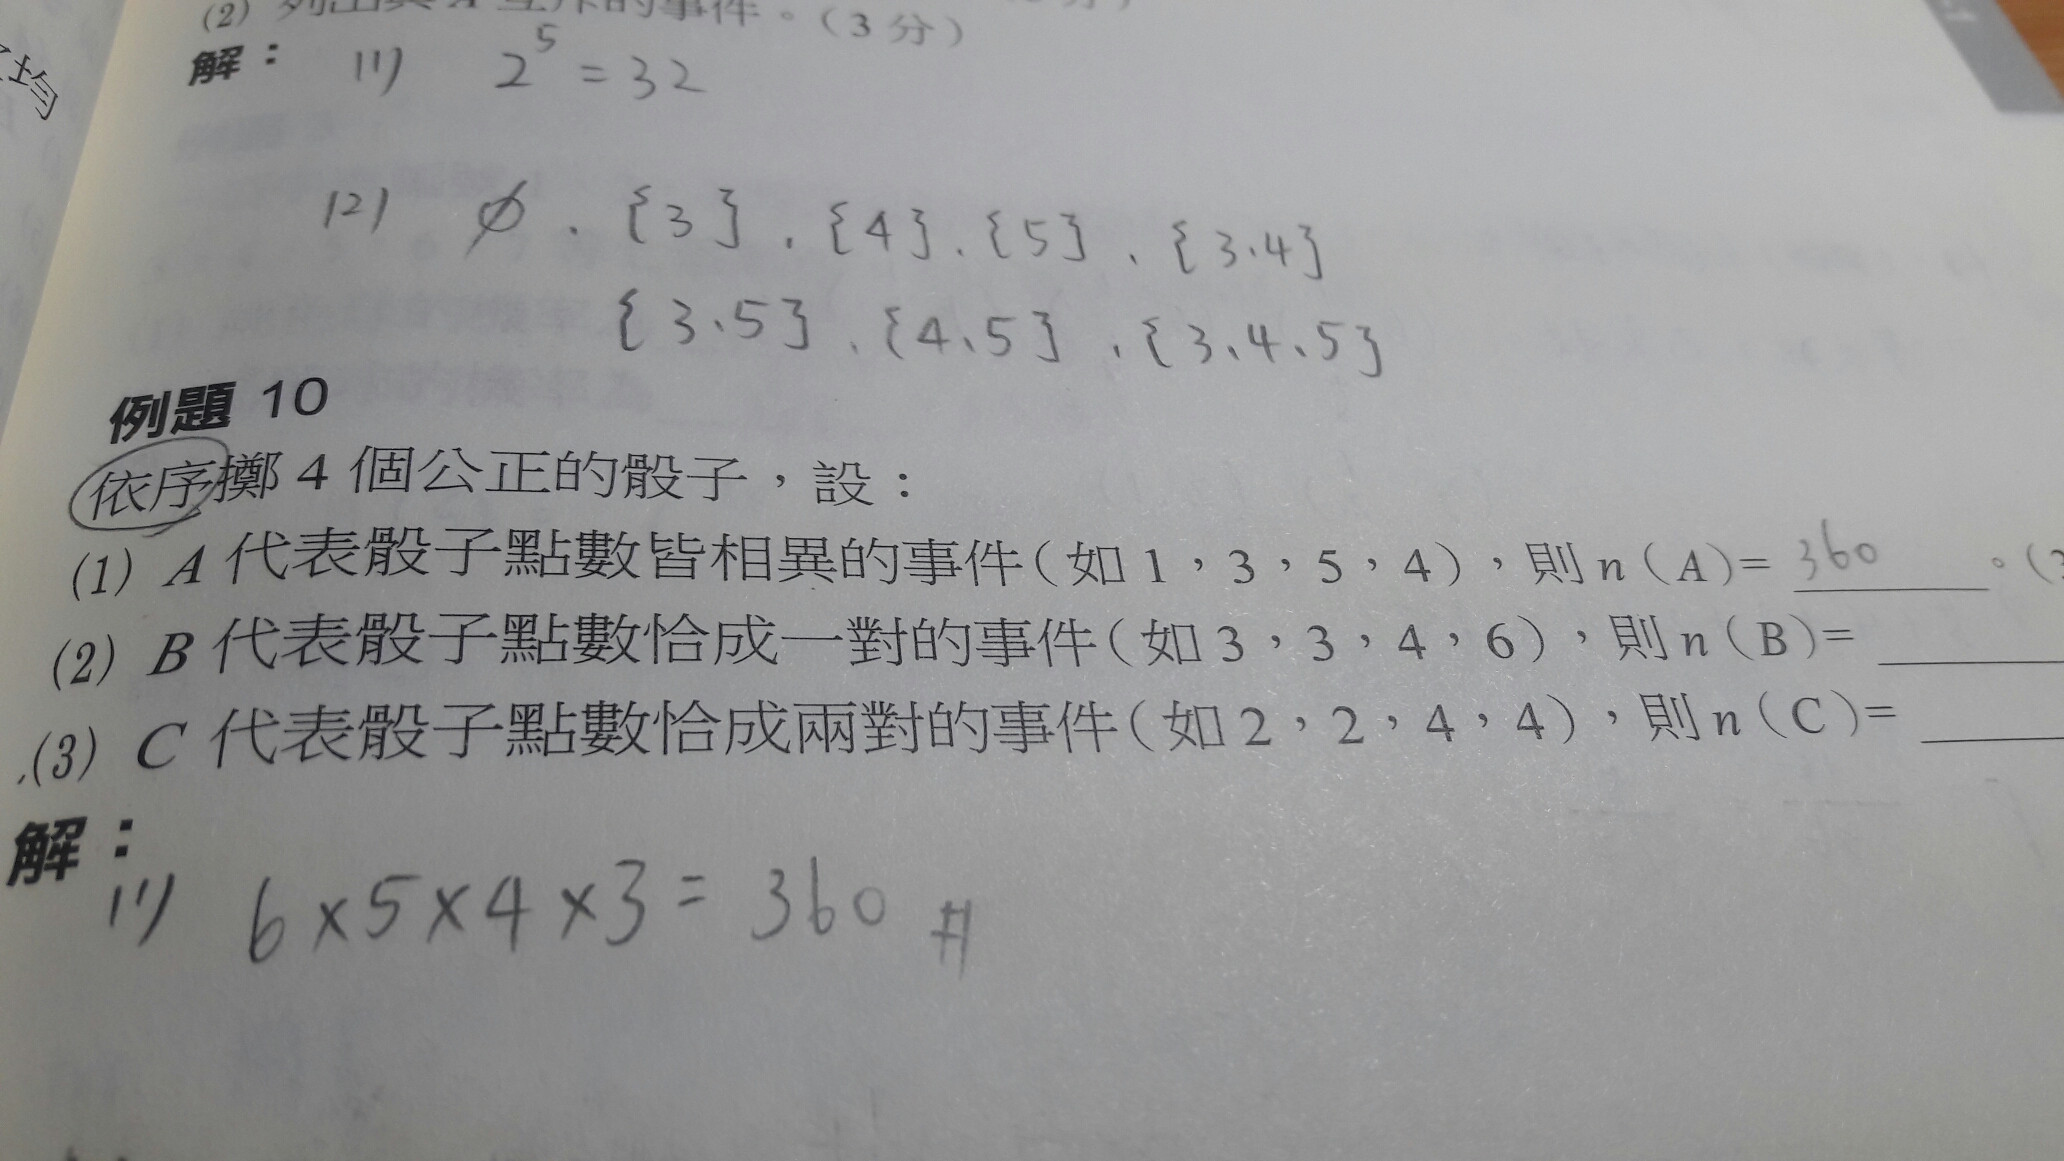 (2) 列出與A互斥的事件。(3分)
解： (1) 2⁵ = 32
均
(2) ∅、{3}、{4}、{5}、{3、4}
{3、5}、{4、5}、{3、4、5}
例題 10
依序擲 4 個公正的骰子，設：
(1) A 代表骰子點數皆相異的事件(如 1，3，5，4)，則 n(A)= 360 。(
(2) B 代表骰子點數恰成一對的事件(如 3，3，4，6)，則 n(B)=
(3) C 代表骰子點數恰成兩對的事件(如 2，2，4，4)，則 n(C)=
解：
(1) 6×5×4×3 = 360 #